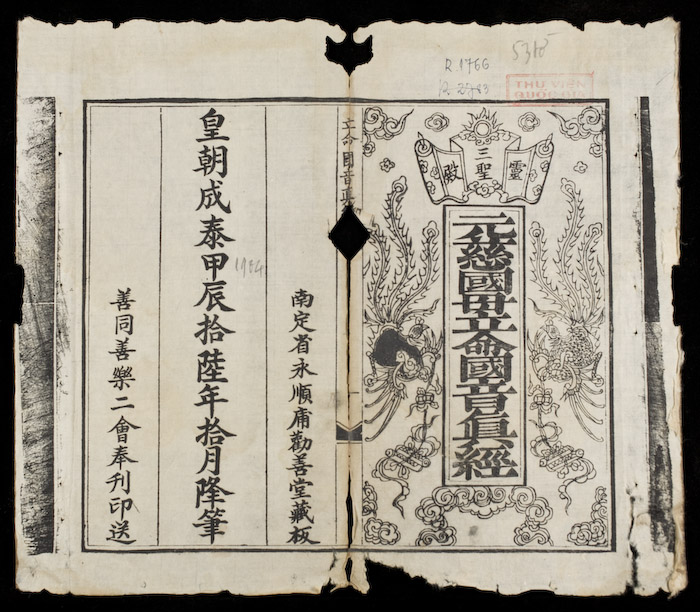 R.1766
THƯ VIỆN
QUỐC GIA
三聖靈殿
元化慈國母立命國音眞經
立命國音眞
南定省永順庯勸善堂藏板
皇朝成泰甲辰拾陸年拾月降筆
1904
善同善樂二會奉刊印送